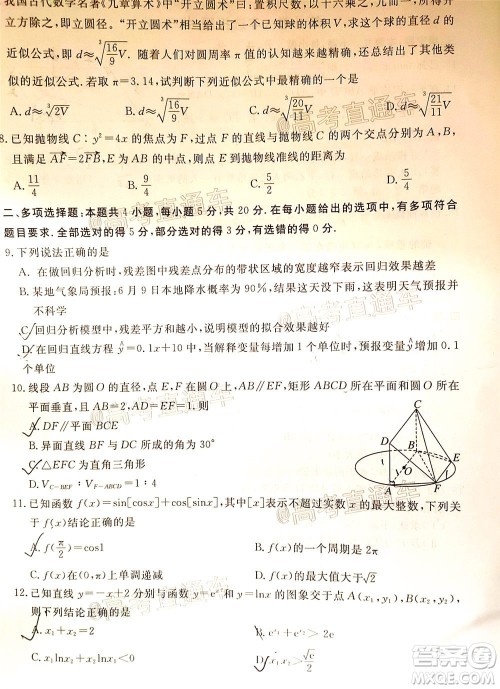 我国古代数学名著《九章算术》中“开立圆术”曰：置积尺数，以十六乘之，九而一，
开立方除之，即立圆径。“开立圆术”相当于给出了一个已知球的体积V，求这个球的直径 d 的
近似公式，即 d≈∛(16/9 V)。人们对圆周率 π 值
类的近似公式. 若取 π=3.14, 试判断下列近似公式中最精确的一个是
A. d≈∛(2V) B. d≈∛(16/9 V) C. d≈∛(20/11 V) D. d≈∛(21/11 V)
8. 已知抛物线 C: y²=4x 的焦点为 F, 过点 F 的直线与抛物线 C 的两个交点分别为 A, B, 且
满足 AF=2FB, E 为 AB 的中点, 则点 E 到抛物线准线的距离为
A. 11/4 B. 9/4 C. 5/2 D. 5/4
二、多项选择题: 本题共 4 小题, 每小题 5 分, 共 20 分. 在每小题给出的选项中, 有多项符合
题目要求. 全部选对的得 5 分, 部分选对的得 3 分, 有选错的得 0 分.
9. 下列说法正确的是
A. 在做回归分析时, 残差图中残差点分布的带状区域的宽度越窄表示回归效果越差
B. 某地气象局预报: 6 月 9 日本地降水概率为 90%, 结果这天没下雨, 这表明天气预报并
不科学
C. 回归分析模型中, 残差平方和越小, 说明模型的拟合效果越好
D. 在回归直线方程 ŷ=0.1x+10 中, 当解释变量每增加 1 个单位时, 预报变量 ŷ 增加 0.1
个单位
10. 线段 AB 为圆 O 的直径, 点 E, F 在圆 O 上, AB∥EF, 矩形 ABCD 所在平面和圆 O 所在
平面垂直, 且 AB=2, AD=EF=1, 则
A. DF∥平面 BCE
B. 异面直线 BF 与 DC 所成的角为 30°
C. △EFC 为直角三角形
D. V_C-BEF : V_F-ABCD = 1 : 4
D C B E O A F
11. 已知函数 f(x)=sin[cosx]+cos[sinx], 其中[x]表示不超过实数 x 的最大整数, 下列关
于 f(x) 结论正确的是
A. f(π/2)=cos1 B. f(x) 的一个周期是 2π
C. f(x) 在(0,π)上单调递减 D. f(x) 的最大值大于 √2
12. 已知直线 y=-x+2 分别与函数 y=eˣ 和 y=lnx 的图象交于点 A(x₁,y₁), B(x₂,y₂),
则下列结论正确的是
A. x₁+x₂=2 B. e^x₁+e^x₂>2e
C. x₁lnx₂+x₂lnx₁<0 D. x₁x₂>√e/2
@高考直通车
@高考直通车
@高考直通车
@高考直通车
答案圈